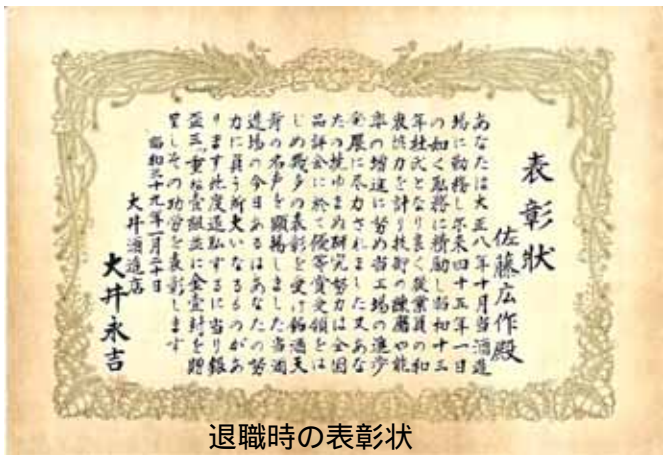 表彰状
佐藤広作殿
あなたは大正八年十月当酒造
場に勤務し尓来四十五年一日
の如く勤務に精励し昭和十三
年杜氏となり良く従業員の和
衷協力を計り技術の錬磨や能
率の増進に努め当工場の進歩
発展に尽力されました又あな
たの撓ゆまぬ研究努力は全国
品評会に於て優等賞受領をは
じめ幾多の表彰を受け銘酒天
寿の名声を顕揚しました当酒
造場の今日あるはあなたの努
力に負う所大いなるものがあ
ります此度退職するに当り銀
盃三ッ重ね壱組並に金壱封を贈
呈しその功労を表彰します
昭和三十九年一月二十日
大井酒造店
大井永吉
退職時の表彰状